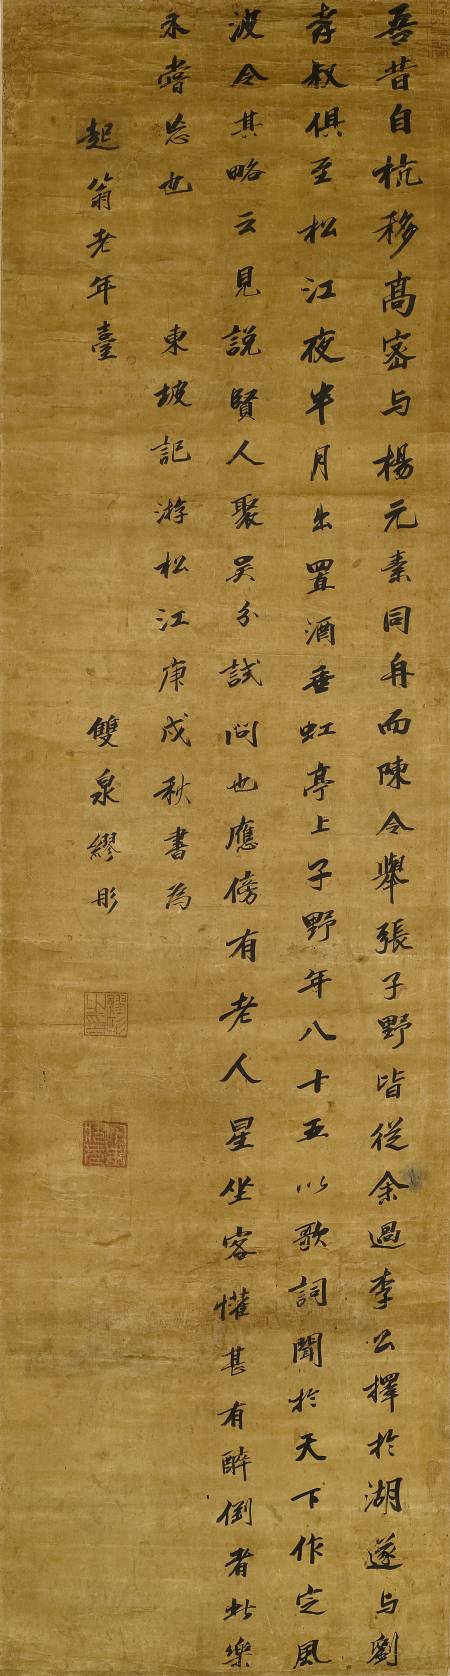 吾昔自杭移高密与楊元素同舟而陳令舉張子野皆從余過李公擇於湖遂与劉
孝叔俱至松江夜半月出置酒垂虹亭上子野年八十五以歌詞聞於天下作定風
波令其略云見說賢人聚吳分試問也應傍有老人星坐客懽甚有醉倒者此樂
未嘗忘也　東坡記游松江庚戌秋書為
起翁老年臺　雙泉繆彤